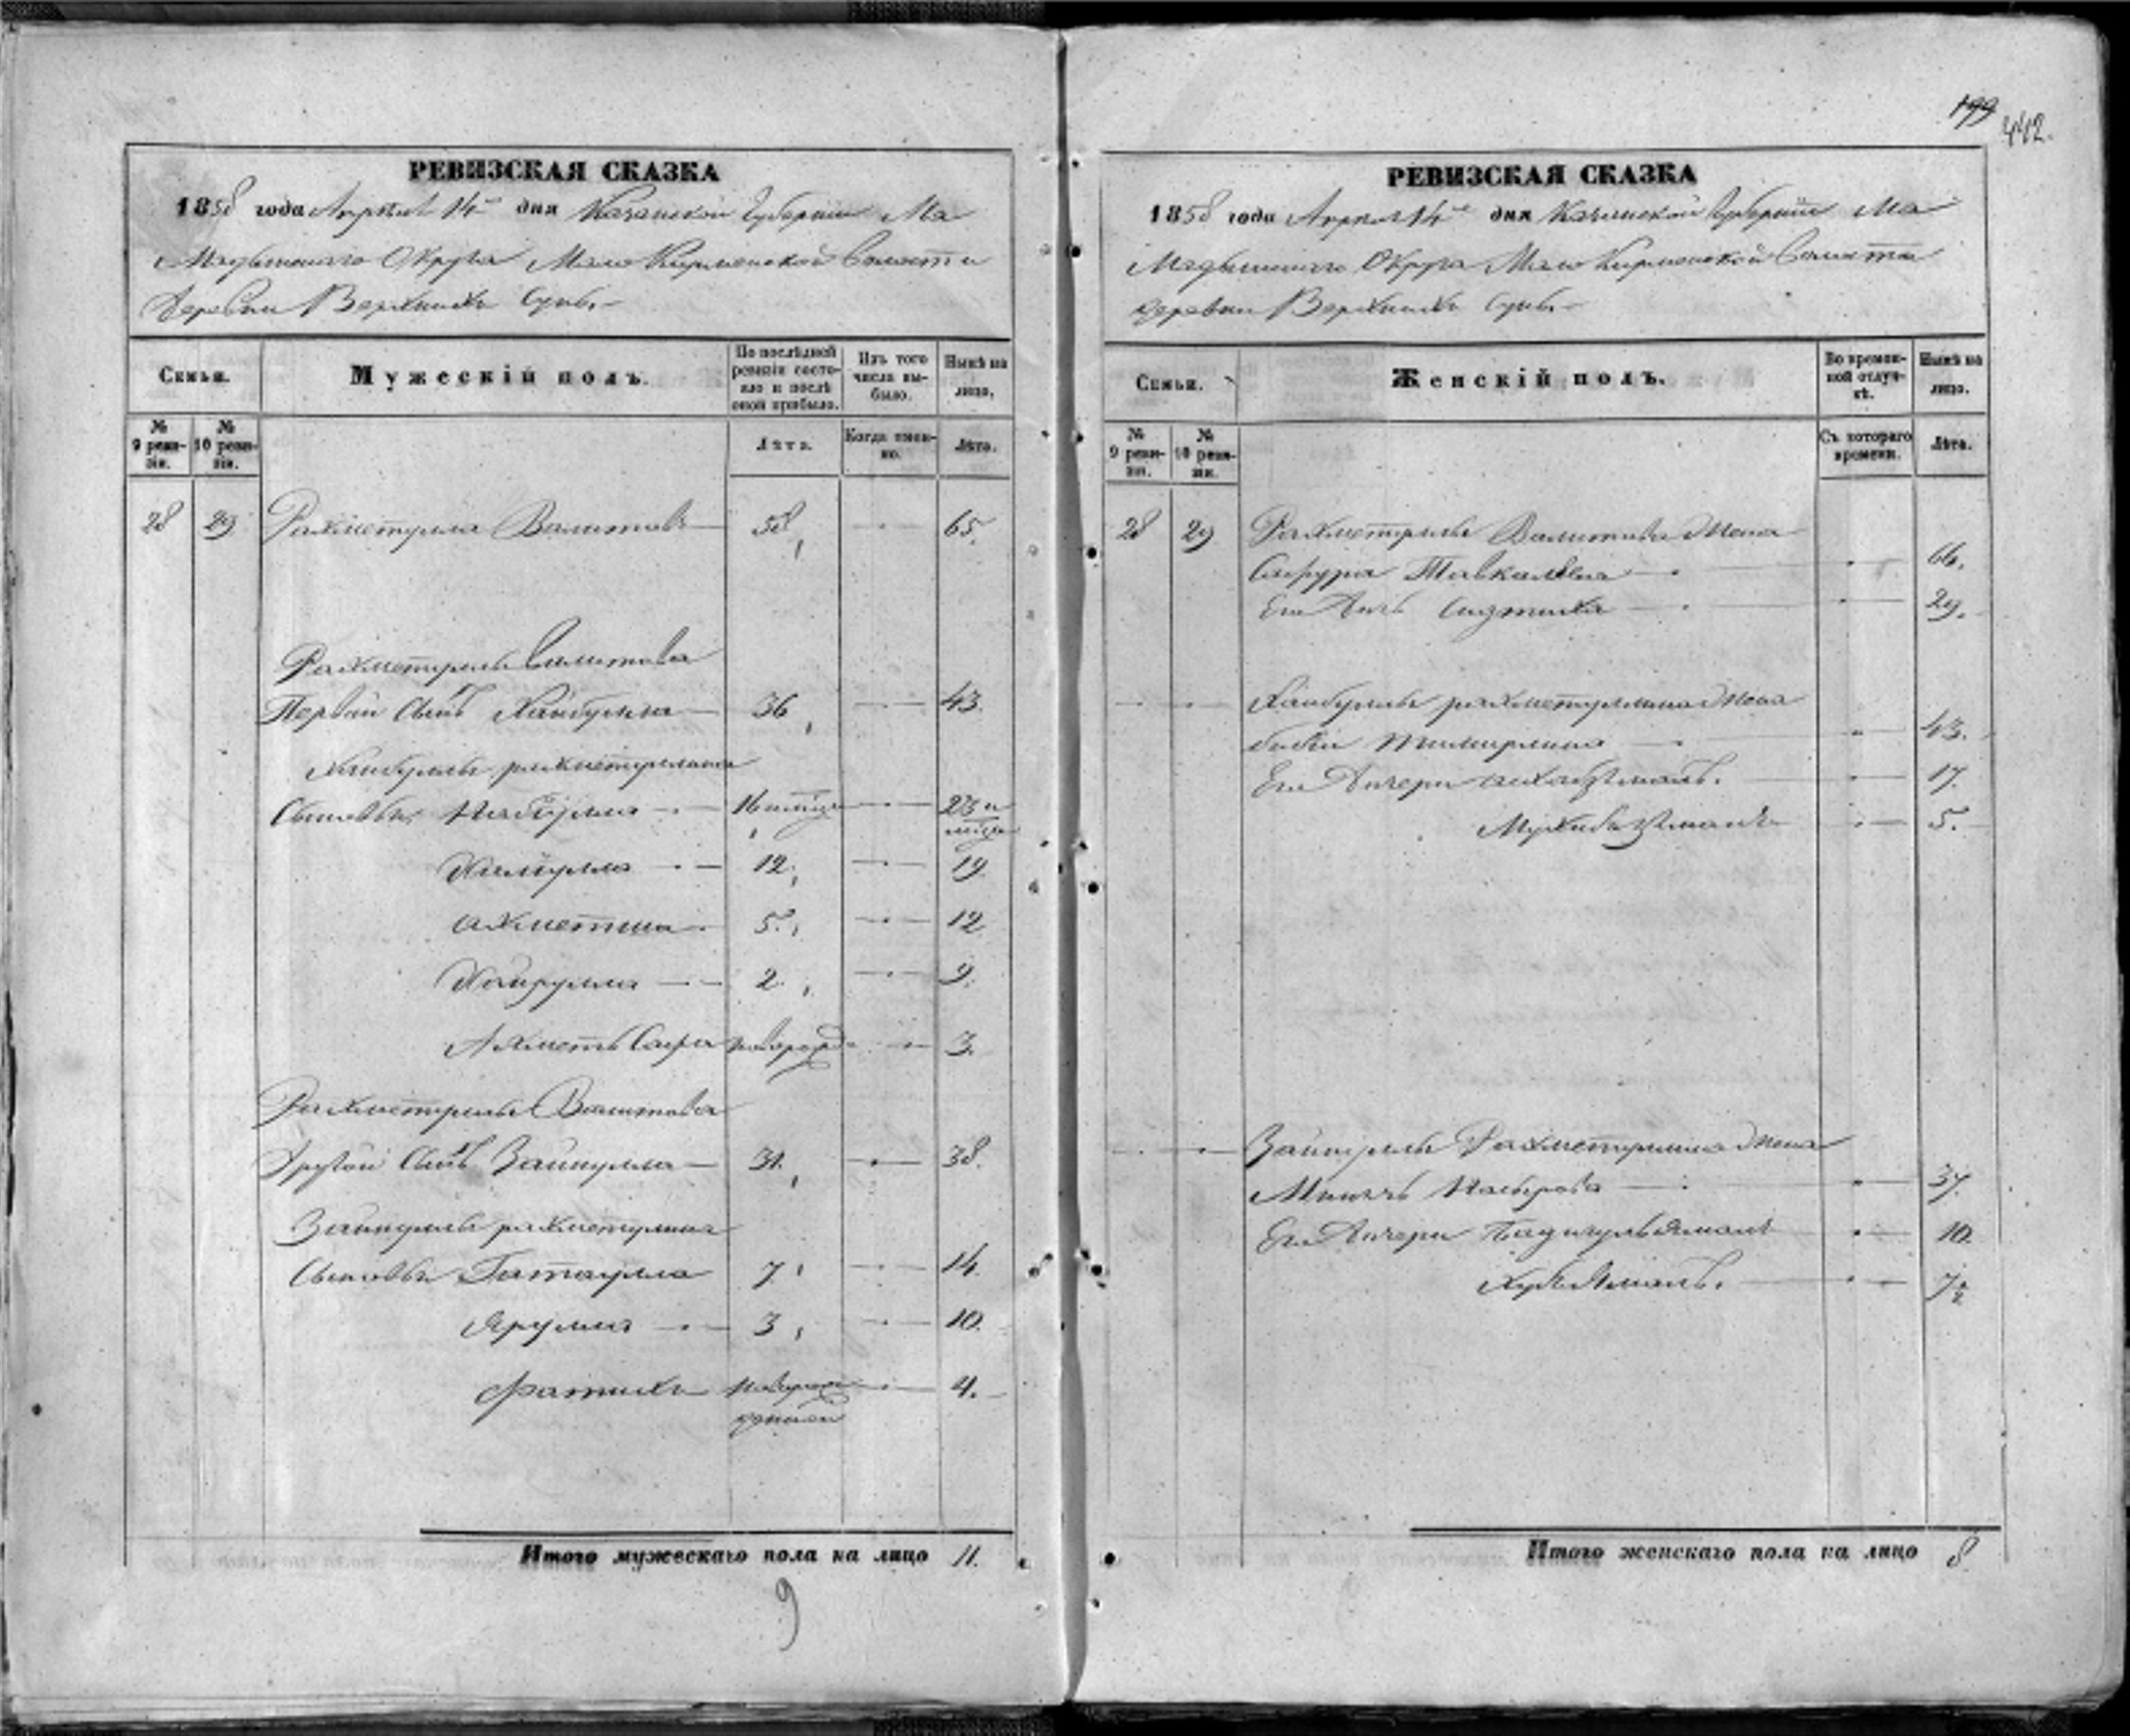 199
442.
РЕВИЗСКАЯ СКАЗКА
1858 года Апреля 14 дня Казанской Губернии Ма
Мадышскаго Округа Мало Кирменской Волости
деревни Верхнихъ Сунь.
Семьи. Мужескій полъ. По послѣдней ревизіи состояло и послѣ оной прибыло. Изъ того числа выбыло. Нынѣ на лицо.
№ 9 ревизіи. № 10 ревизіи. Лѣта. Когда именно. Лѣта.
28 29 Рахметулла Валитовъ 58 65.
Рахметуллы Валитова
Первой Сынъ Хайбулла 36 43.
Хайбуллы рахметуллина
Сыновья 16 23
12. 19.
Ахметша 5. 12
Хайрулла 2. 9.
Ахметъ Сафа новорожд 3.
Рахметуллы Валитова
Другой Сынъ Зайнулла 31. 38.
Зайнуллы рахметуллина
Сыновья Гатаулла 7 14.
Ярулла 3 10.
Фатихъ новорож 4.
денной
Итого мужескаго пола на лицо 11.
9
РЕВИЗСКАЯ СКАЗКА
1858 года Апреля 14 дня Казанской Губернии Ма
Мадышскаго Округа Мало Кирменской Волости
деревни Верхнихъ Сунь.
Семьи. Женскій полъ. Во временной отлучкѣ. Нынѣ на лицо.
№ 9 ревизіи. № 10 ревизіи. Съ котораго времени. Лѣта.
28 29 Рахметуллы Валитова Жена
Сафура Тавкалева 66.
Его Дочь 29.
Хайбуллы рахметуллина Жена
43.
Его Дочери 17.
5.
Зайнуллы Рахметуллина Жена
Насырова 37.
Его Дочери 10.
Итого женскаго пола на лицо 8